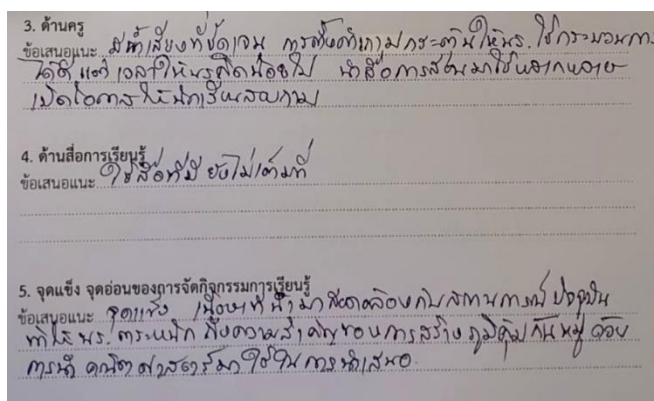 3. ด้านครู
ข้อเสนอแนะ มีน้ำเสียงที่ชัดเจน การตั้งคำถามกระตุ้นให้นร. ใช้กระบวนการ
ได้ดี แต่ เวลาให้นรคิดน้อยไป นำสื่อการสอนมาใช้หลากหลาย
เปิดโอกาสให้นักเรียนสอบถาม
4. ด้านสื่อการเรียนรู้
ข้อเสนอแนะ ใช้สื่อที่มี ยังไม่เต็มที่
5. จุดแข็ง จุดอ่อนของการจัดกิจกรรมการเรียนรู้
ข้อเสนอแนะ จุดแข็ง เนื้อหาที่นำมาสอดคล้องกับสถานการณ์ปัจจุบัน
ทำให้ นร. ตระหนัก ถึงความสำคัญของการสร้างภูมิคุ้มกันหมู่ ด้วย
การนำ คณิตศาสตร์มาใช้ในการนำเสนอ